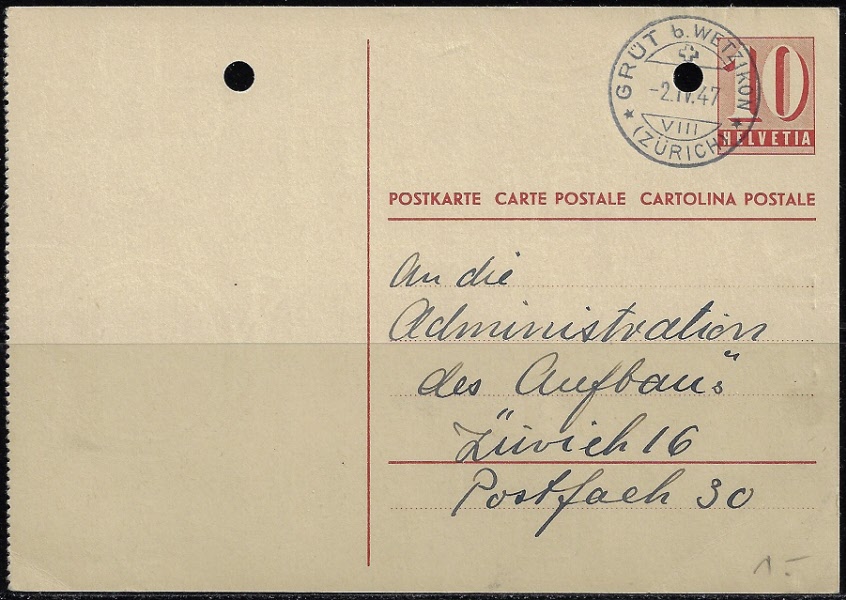 GRÜT b. WETZIKON
-2.IV.47
VIII
(ZÜRICH)
10
HELVETIA
POSTKARTE CARTE POSTALE CARTOLINA POSTALE
An die
Administration
des Aufbau"s
Zürich 16
Postfach 30
1.-